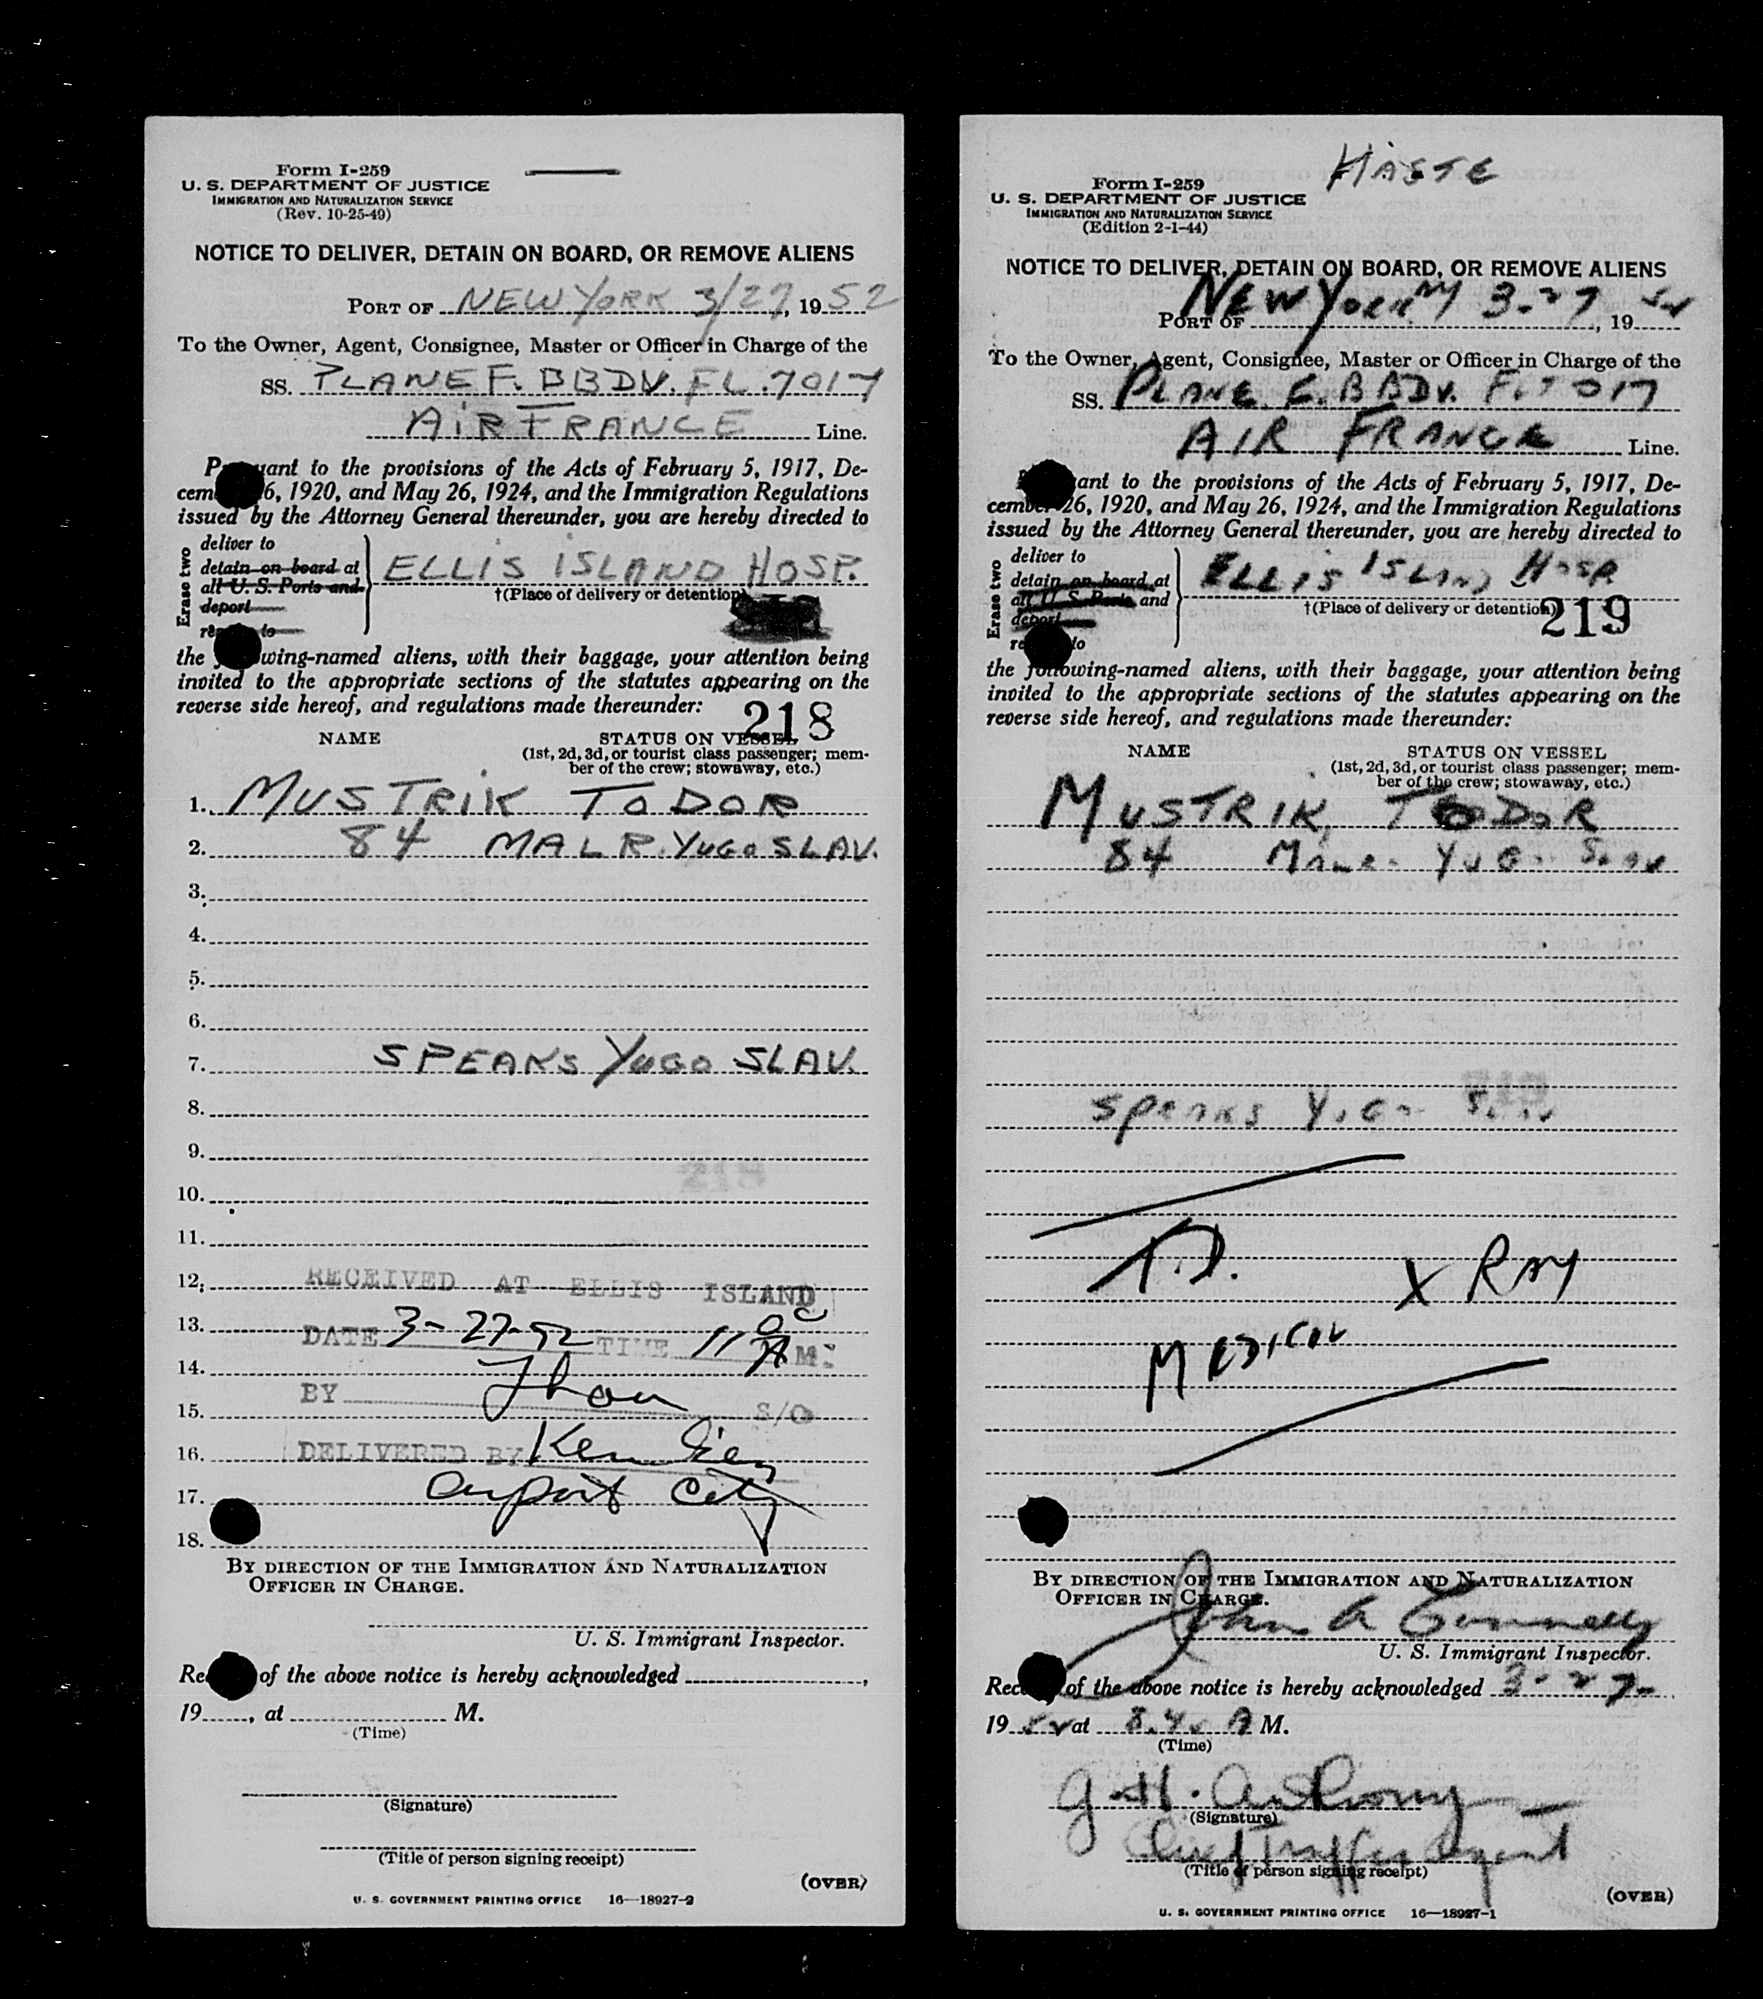 Form I-259
U. S. DEPARTMENT OF JUSTICE
IMMIGRATION AND NATURALIZATION SERVICE
(Rev. 10-25-49)
NOTICE TO DELIVER, DETAIN ON BOARD, OR REMOVE ALIENS
PORT OF NEW YORK 3/27, 1952
To the Owner, Agent, Consignee, Master or Officer in Charge of the
SS. PLANE F. BBDV. FL. 7017
AIR FRANCE Line.
Pursuant to the provisions of the Acts of February 5, 1917, De-
cember 26, 1920, and May 26, 1924, and the Immigration Regulations
issued by the Attorney General thereunder, you are hereby directed to
Erase two
deliver to
detain on board at
all U. S. Ports and
deport
remove to
ELLIS ISLAND HOSP.
†(Place of delivery or detention)
the following-named aliens, with their baggage, your attention being
invited to the appropriate sections of the statutes appearing on the
reverse side hereof, and regulations made thereunder:
218
NAME STATUS ON VESSEL
(1st, 2d, 3d, or tourist class passenger; mem-
ber of the crew; stowaway, etc.)
1. MUSTRIK TODOR
2. 84 MALR. YUGOSLAV.
3.
4.
5.
6.
7. SPEAKS YUGO SLAV.
8.
9.
10.
11.
12. RECEIVED AT ELLIS ISLAND
13. DATE 3-27-52 TIME 11 00 A M.
14.
15. BY S/O
16. DELIVERED BY
17. Airport City
18.
BY DIRECTION OF THE IMMIGRATION AND NATURALIZATION
OFFICER IN CHARGE.
U. S. Immigrant Inspector.
Receipt of the above notice is hereby acknowledged ,
19 , at M.
(Time)
(Signature)
(Title of person signing receipt)
(OVER)
U. S. GOVERNMENT PRINTING OFFICE 16—18927-2
HASTE
Form I-259
U. S. DEPARTMENT OF JUSTICE
IMMIGRATION AND NATURALIZATION SERVICE
(Edition 2-1-44)
NOTICE TO DELIVER, DETAIN ON BOARD, OR REMOVE ALIENS
PORT OF NEW YORK NY 3-27, 1952
To the Owner, Agent, Consignee, Master or Officer in Charge of the
SS. PLANE F. BBDV. F. 7017
AIR FRANCE Line.
Pursuant to the provisions of the Acts of February 5, 1917, De-
cember 26, 1920, and May 26, 1924, and the Immigration Regulations
issued by the Attorney General thereunder, you are hereby directed to
Erase two
deliver to
detain on board at
all U. S. Ports and
deport
remove to
ELLIS ISLAND HOSP.
†(Place of delivery or detention)
219
the following-named aliens, with their baggage, your attention being
invited to the appropriate sections of the statutes appearing on the
reverse side hereof, and regulations made thereunder:
NAME STATUS ON VESSEL
(1st, 2d, 3d, or tourist class passenger; mem-
ber of the crew; stowaway, etc.)
MUSTRIK, TODOR
84 MALE. YUGO SLAV
SPEAKS YUGO SLAV
T.D. X RAY
MEDICAL
BY DIRECTION OF THE IMMIGRATION AND NATURALIZATION
OFFICER IN CHARGE.
John A Connelly
U. S. Immigrant Inspector.
Receipt of the above notice is hereby acknowledged 3-27-
1952 at 8.45 A M.
(Time)
G. H. Anthony
(Signature)
Chief Traffic Agent
(Title of person signing receipt)
(OVER)
U. S. GOVERNMENT PRINTING OFFICE 16—18927-1